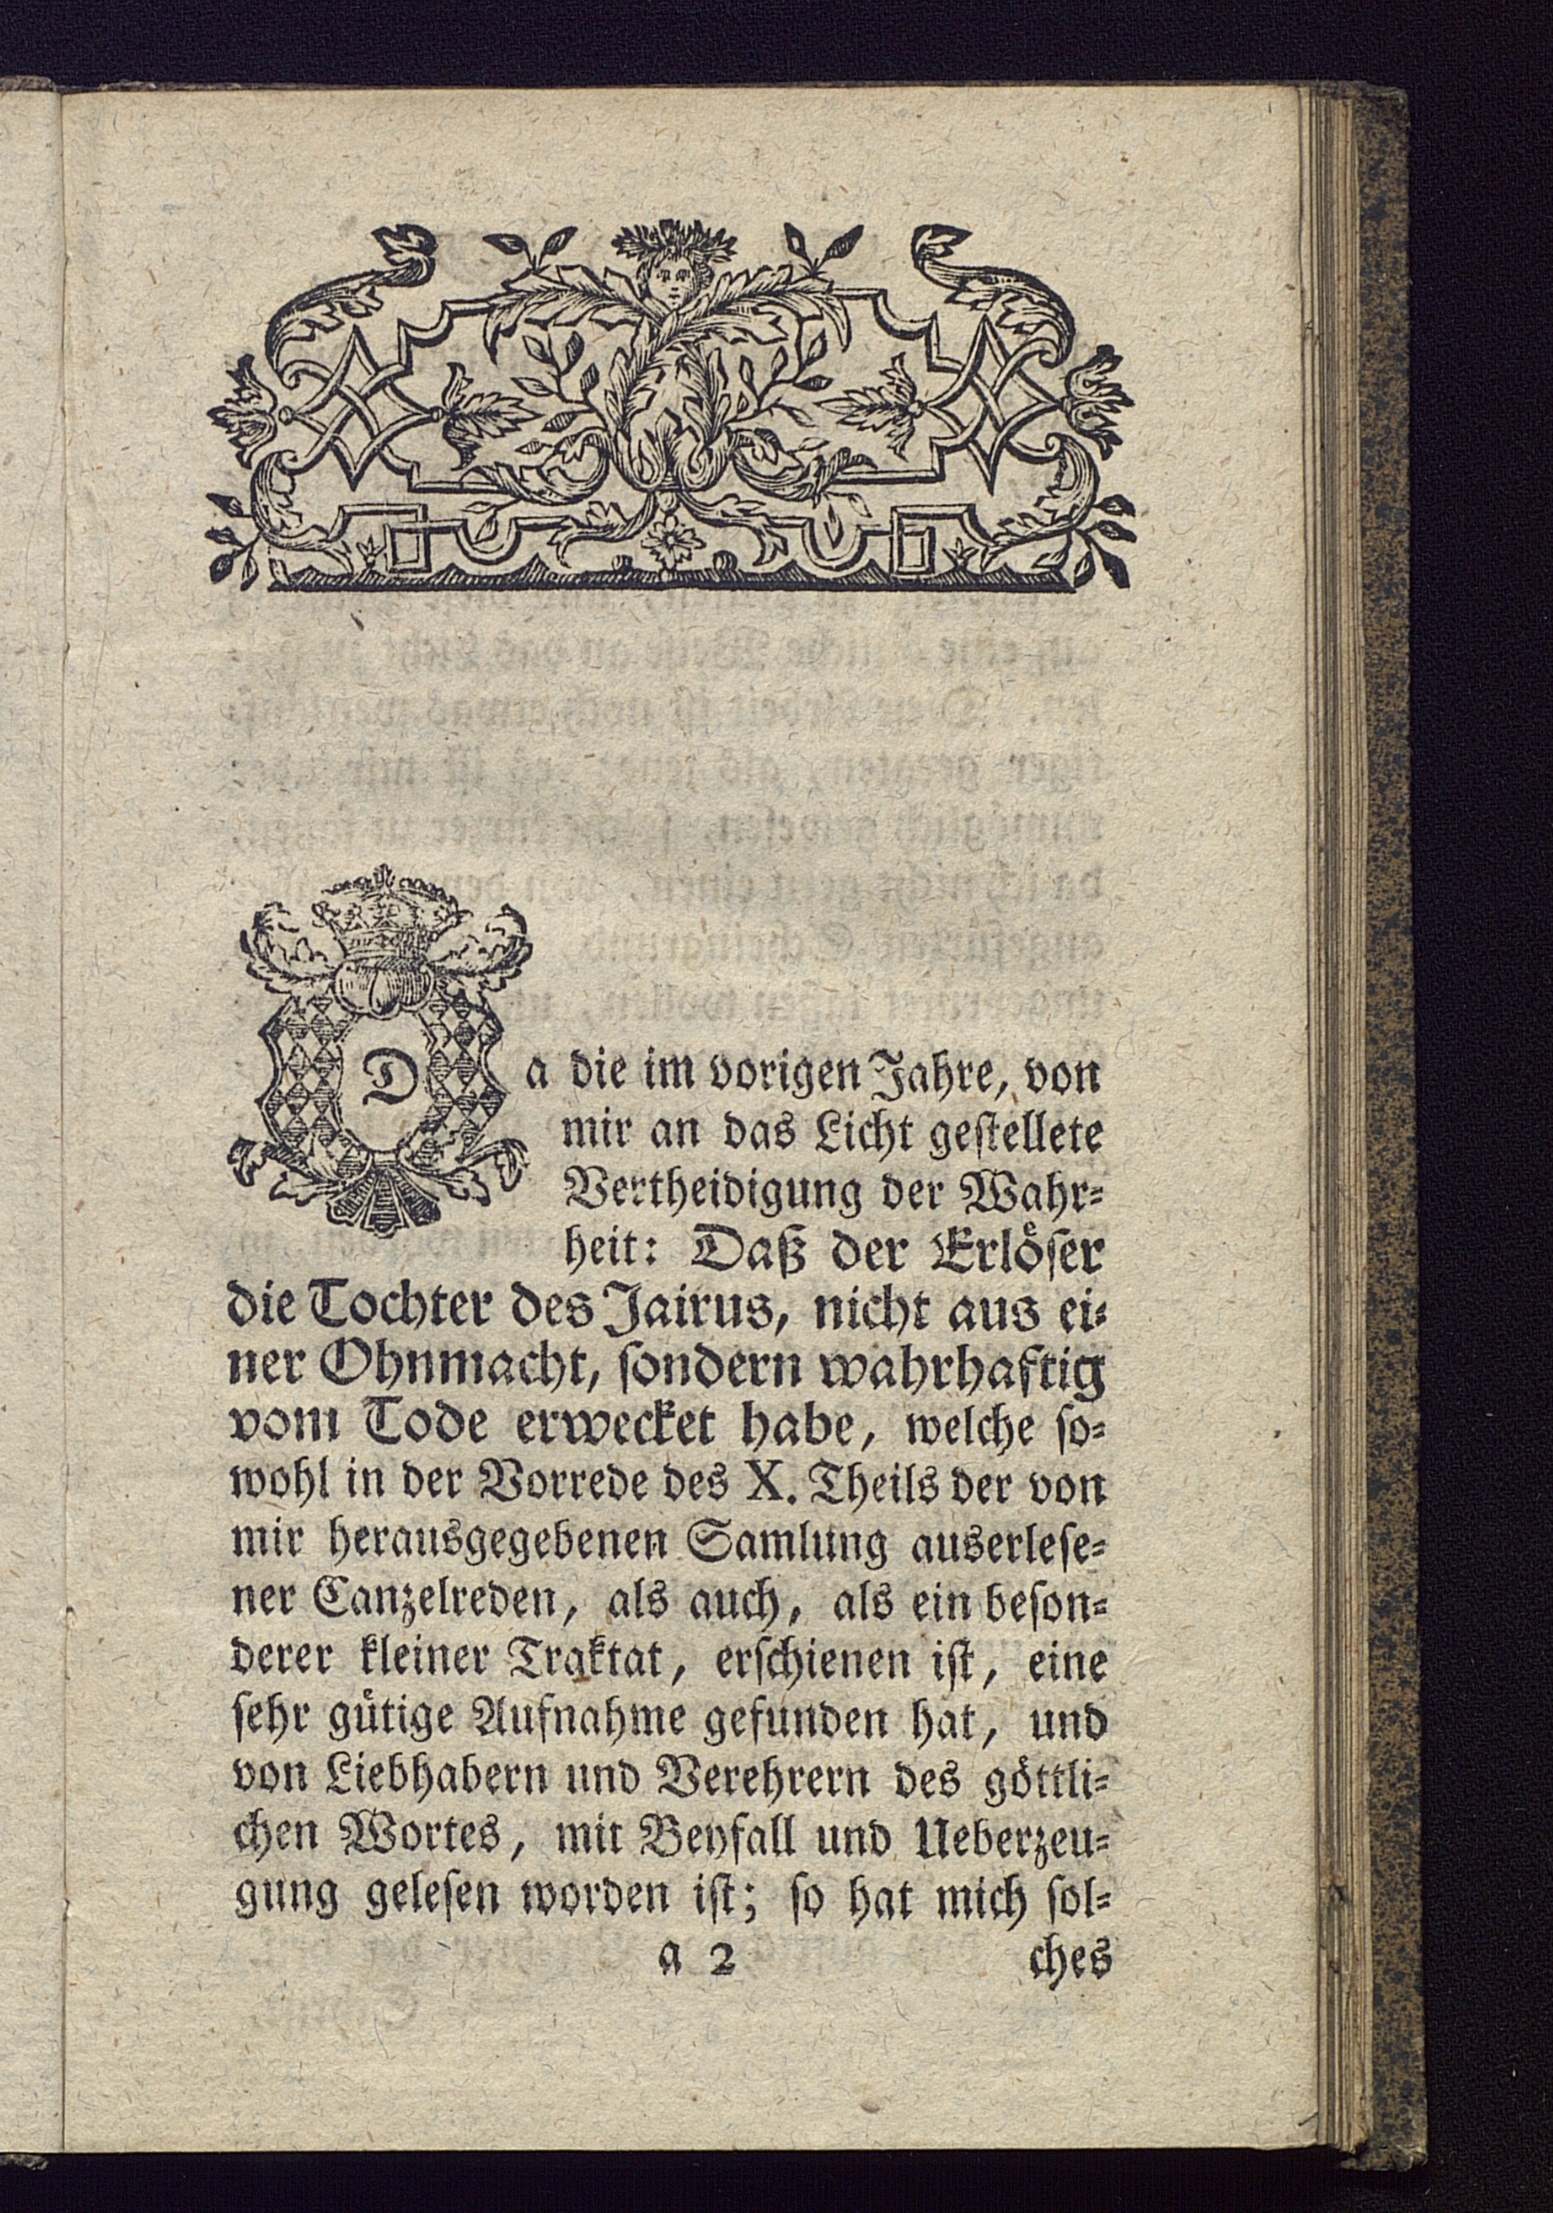 Da die im vorigen Jahre, von
mir an das Licht geſtellete
Vertheidigung der Wahr⸗
heit: Daß der Erloͤſer
die Tochter des Jairus, nicht aus ei⸗
ner Ohnmacht, ſondern wahrhaftig
vom Tode erwecket habe, welche ſo⸗
wohl in der Vorrede des X. Theils der von
mir herausgegebenen Samlung auserleſe⸗
ner Canzelreden, als auch, als ein beſon⸗
derer kleiner Traktat, erſchienen iſt, eine
ſehr guͤtige Aufnahme gefunden hat, und
von Liebhabern und Verehrern des goͤttli⸗
chen Wortes, mit Beyfall und Ueberzeu⸗
gung geleſen worden iſt; ſo hat mich ſol⸗
a 2 ches